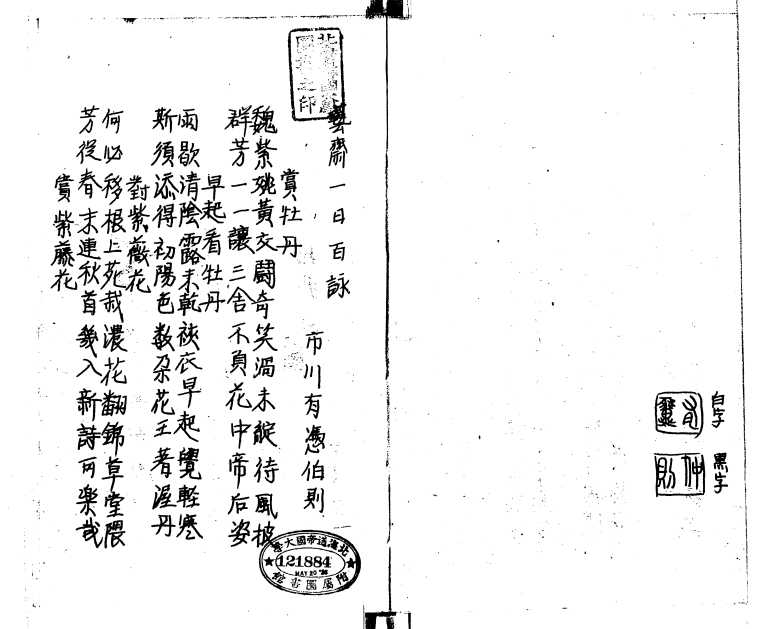 白字
黒字
藝齋一日百詠
市川有憑伯則
賞牡丹
魏紫姚黃交鬪奇笑渦未綻待風披
群芳一一讓三舍不負花中帝后姿
早起看牡丹
雨歇清陰露未乾袂衣早起覺輕寒
斯須添得初陽色数朶花王著渥丹
對紫薇花
何必移根上苑栽濃花翻錦草堂隈
芳從春末連秋首幾入新詩可樂哉
賞紫藤花
北海道帝國大學
121884
MAY 20
附屬圖書館